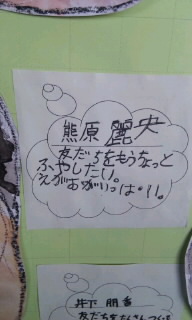 熊原 麗央
友だちをもうちょっと
ふやしたい。
えがおがいっぱい。
井下 朋香
友だちをたくさんつくる